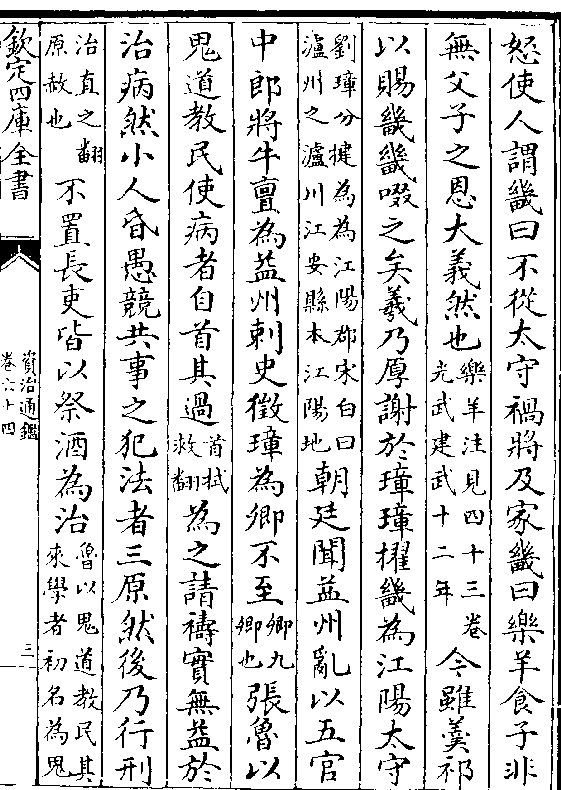 怒使人謂畿曰不從太守禍將及家畿曰樂羊食子非
無父子之恩大義然也樂羊注見四十三卷光武建武十二年今雖羹祁
以賜畿畿啜之矣羲乃厚謝於璋璋擢畿為江陽太守
劉璋分揵為為江陽郡宋白曰瀘州之瀘川江安縣本江陽地朝廷聞益州亂以五官
中郎將牛亶為益州刺史徵璋為卿不至卿九卿也張魯以
鬼道教民使病者自首其過首式救翻為之請禱實無益於
治病然小人昏愚競共事之犯法者三原然後乃行刑
治直之翻原赦也不置長吏皆以祭酒為治魯以鬼道教民其來學者初名為鬼
欽定四庫全書
資治通鑑
卷六十四
三